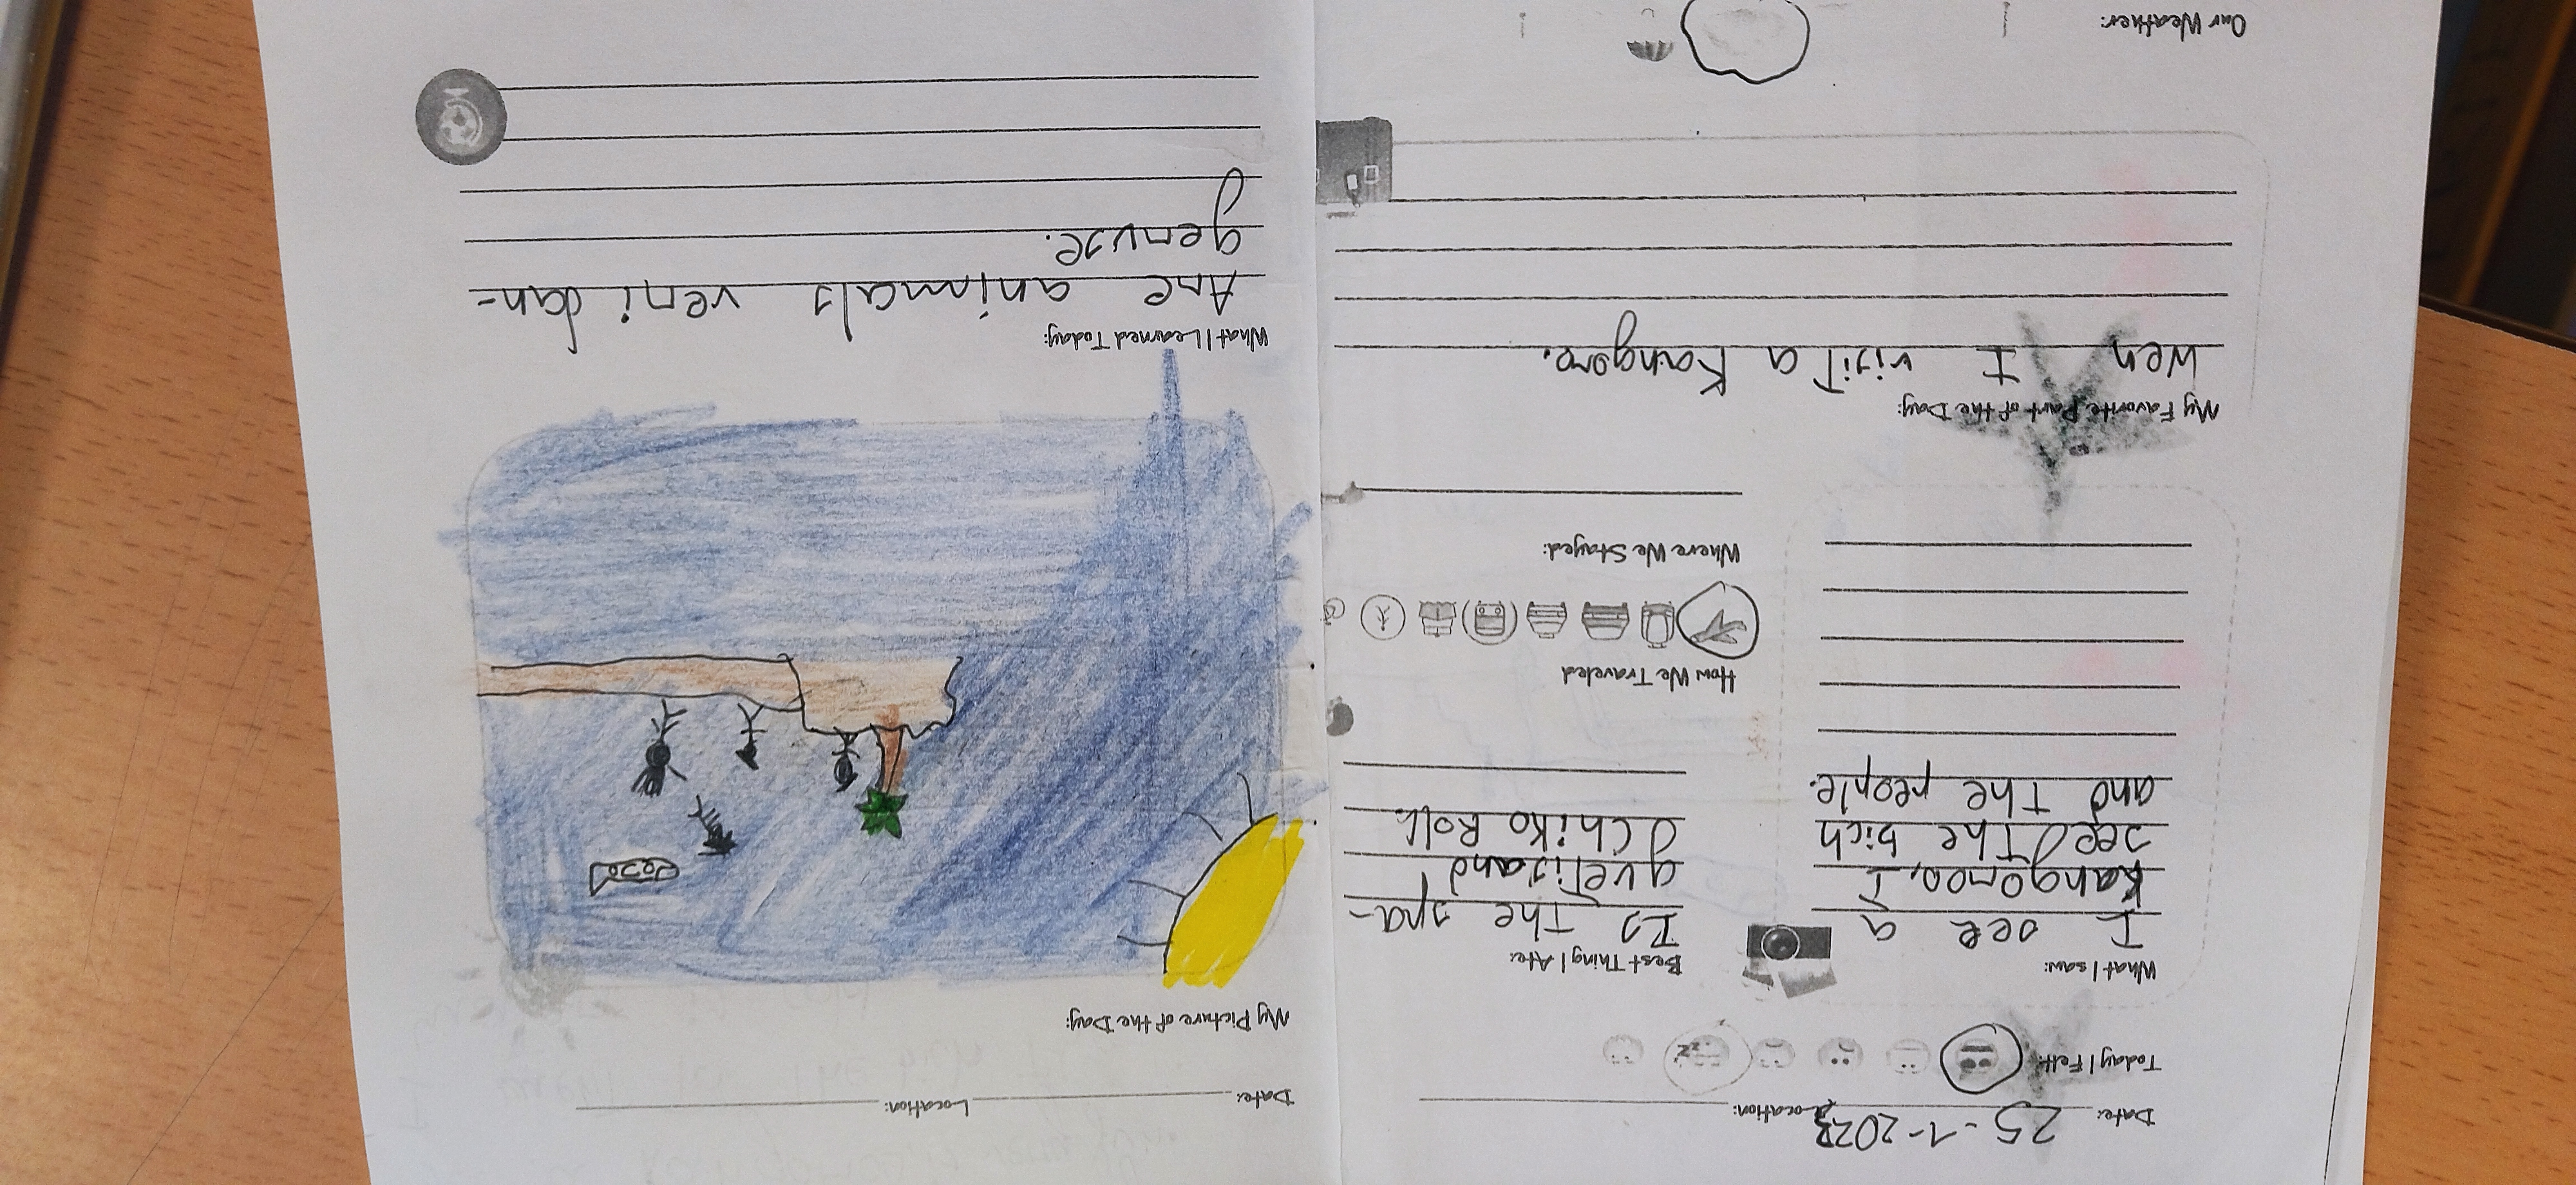 Date: 25-1-2023 Location:
Today I Felt:
What I saw:
I see a
Kangoroo, I
see the bich
and the people.
Best Thing I Ate:
Es the spa-
guetis and
Chiko Roll
How We Traveled
Where We Stayed:
My Favorite Part of the Day:
Wen I visit a Kangoro.
Our Weather:
Date: Location:
My Picture of the Day:
What I Learned Today:
Are animals veri dan-
gerust.